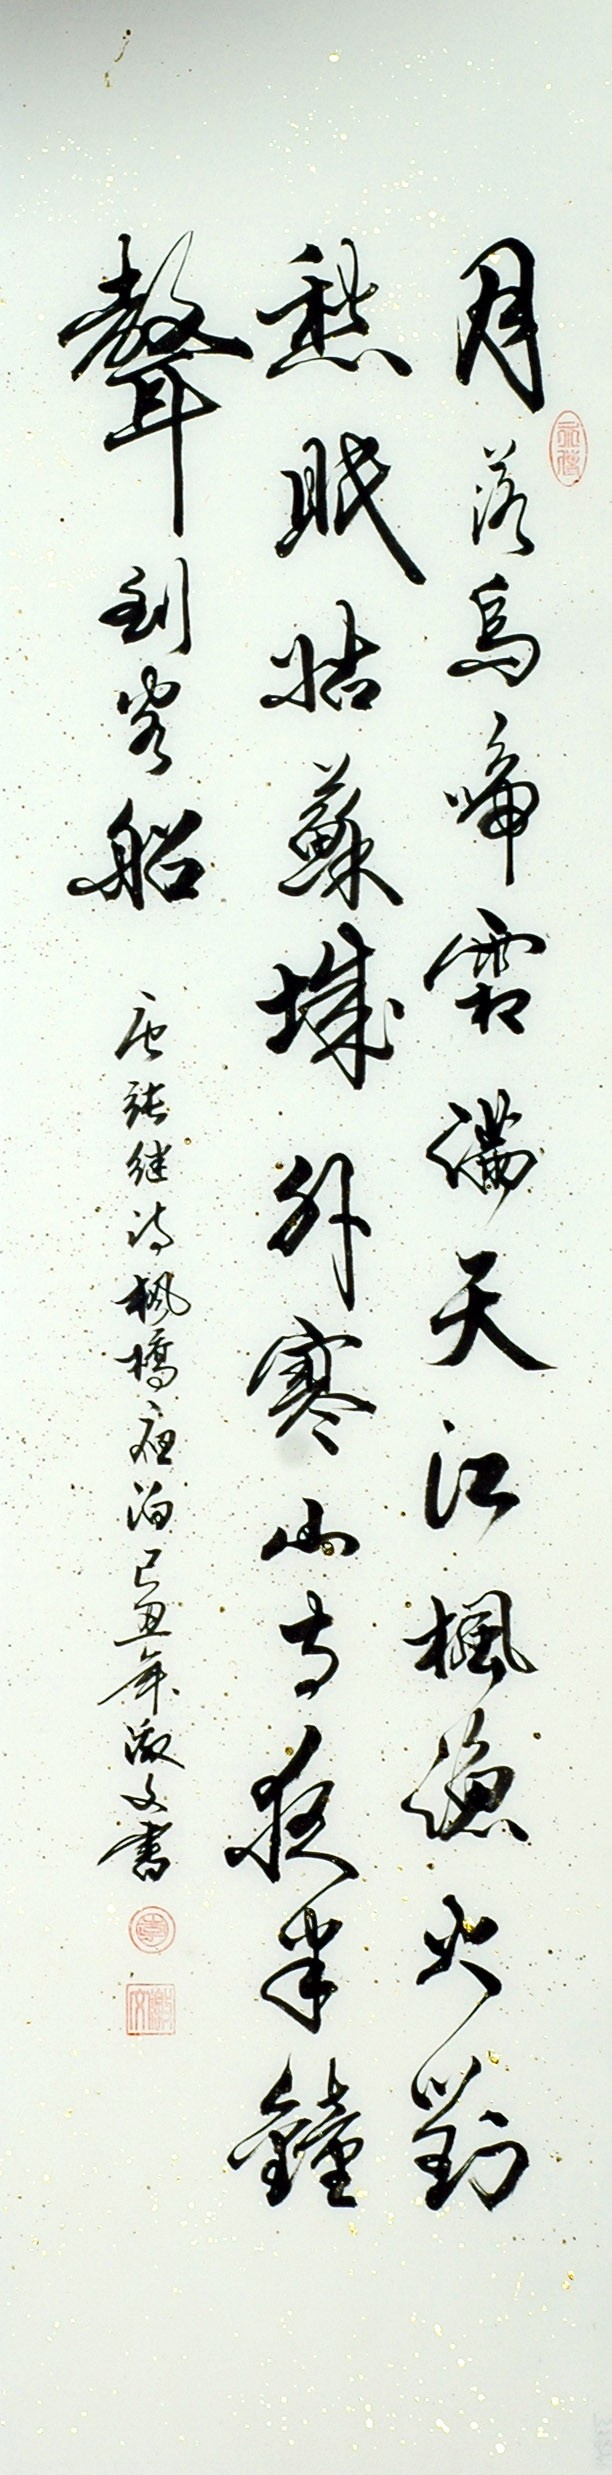 月落烏啼霜滿天江楓漁火對
愁眠姑蘇城外寒山寺夜半鐘
聲到客船
唐張继诗楓橋夜泊己丑年啟文書